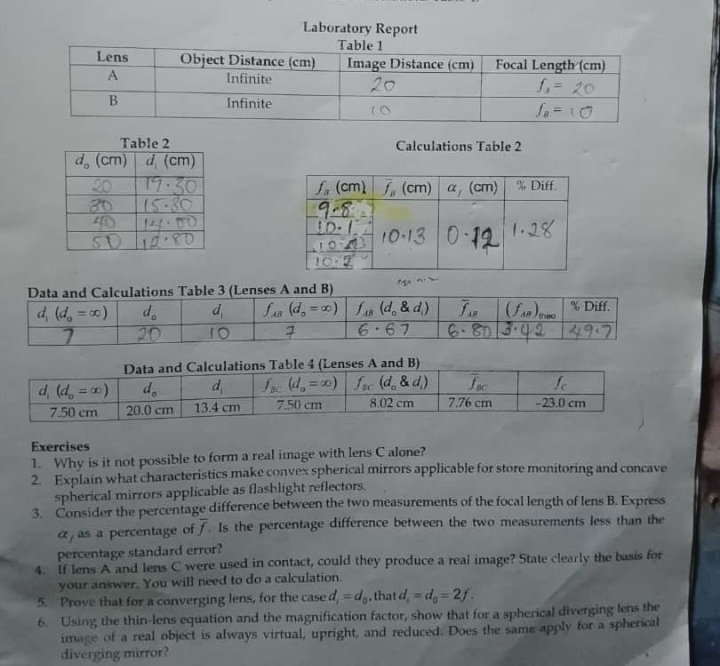 Laboratory Report
Table 1
Lens Object Distance (cm) Image Distance (cm) Focal Length (cm)
A Infinite 20 f_A = 20
B Infinite 10 f_B = 10
Table 2
d_o (cm) d_i (cm)
20 19.30
30 15.80
40 14.00
50 12.80
Calculations Table 2
f_B (cm) f̄_B (cm) α_f (cm) % Diff.
9.8
10.1
10.13 0.12 1.28
Data and Calculations Table 3 (Lenses A and B)
d_i (d_o = ∞) d_o d_i f_AB (d_o = ∞) f_AB (d_o & d_i) f̄_AB (f_AB)theo % Diff.
7 20 10 7 6.67 6.80 3.42 49.7
Data and Calculations Table 4 (Lenses A and B)
d_i (d_o = ∞) d_o d_i f_BC (d_o = ∞) f_BC (d_o & d_i) f̄_BC f_c
7.50 cm 20.0 cm 13.4 cm 7.50 cm 8.02 cm 7.76 cm -23.0 cm
Exercises
1. Why is it not possible to form a real image with lens C alone?
2. Explain what characteristics make convex spherical mirrors applicable for store monitoring and concave
spherical mirrors applicable as flashlight reflectors.
3. Consider the percentage difference between the two measurements of the focal length of lens B. Express
α_f as a percentage of f̄. Is the percentage difference between the two measurements less than the
percentage standard error?
4. If lens A and lens C were used in contact, could they produce a real image? State clearly the basis for
your answer. You will need to do a calculation.
5. Prove that for a converging lens, for the case d_i = d_o, that d_i = d_o = 2f.
6. Using the thin-lens equation and the magnification factor, show that for a spherical diverging lens the
image of a real object is always virtual, upright, and reduced. Does the same apply for a spherical
diverging mirror?